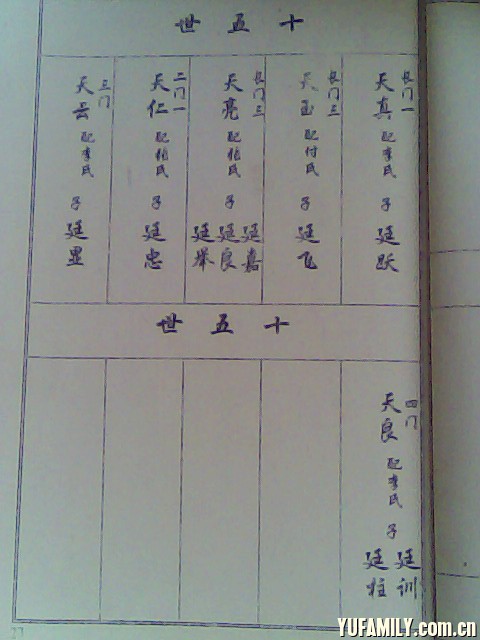 十五世
長门一
天真 配李氏 子 廷跃
長门三
天玉 配付氏 子 廷飞
長门三
天亮 配杨氏 子 廷嘉
廷良
廷举
二门一
天仁 配杨氏 子 廷忠
三门
天云 配李氏 子 廷显
十五世
四门
天良 配李氏 子 廷训
廷柱
77
YUFAMILY.com.cn